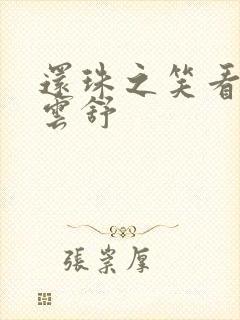 還珠之笑看
雲舒
張崇厚